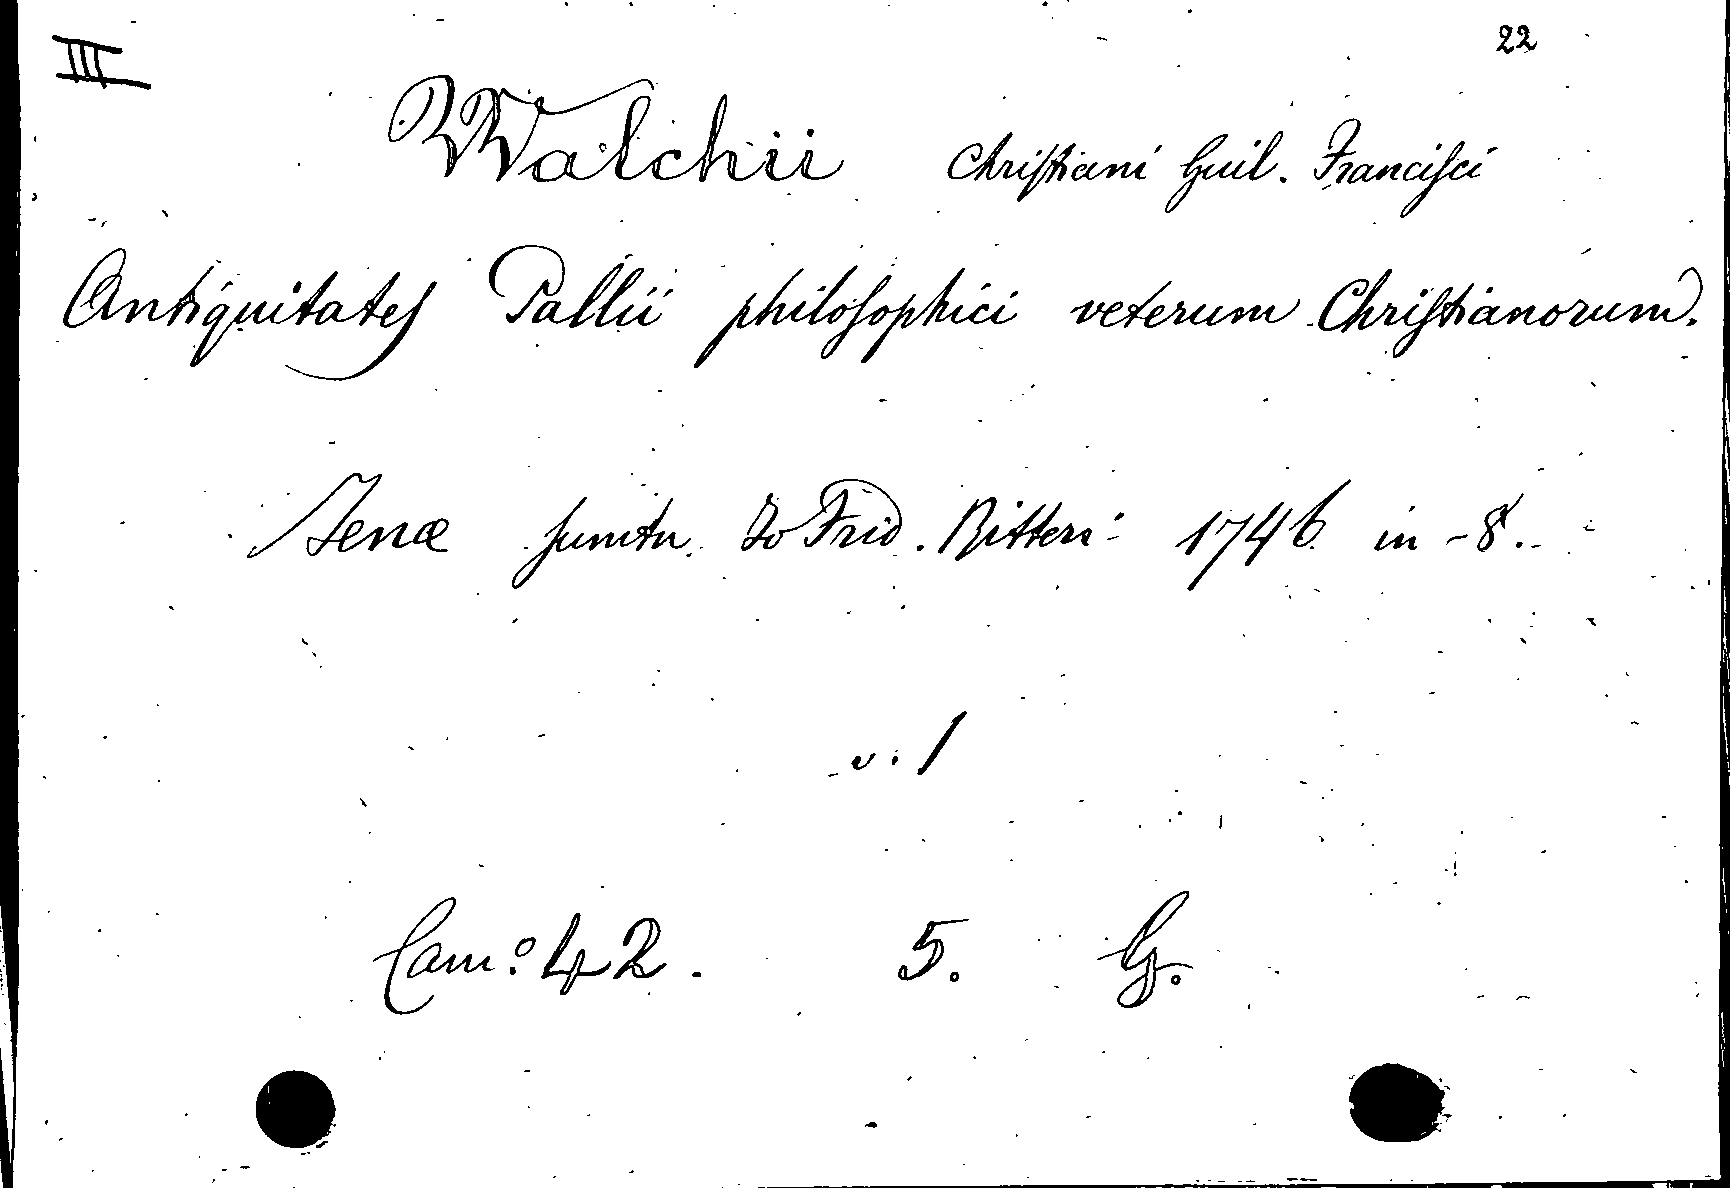 III 22
Walchii Chriſtiani Guil. Franciſci
Antiquitates Pallii philoſophici veterum Chriſtianorum.
Jenæ ſumtu Jo Frid. Ritteri 1746 in-8.
v. 1
Cam: 42. 5. G.